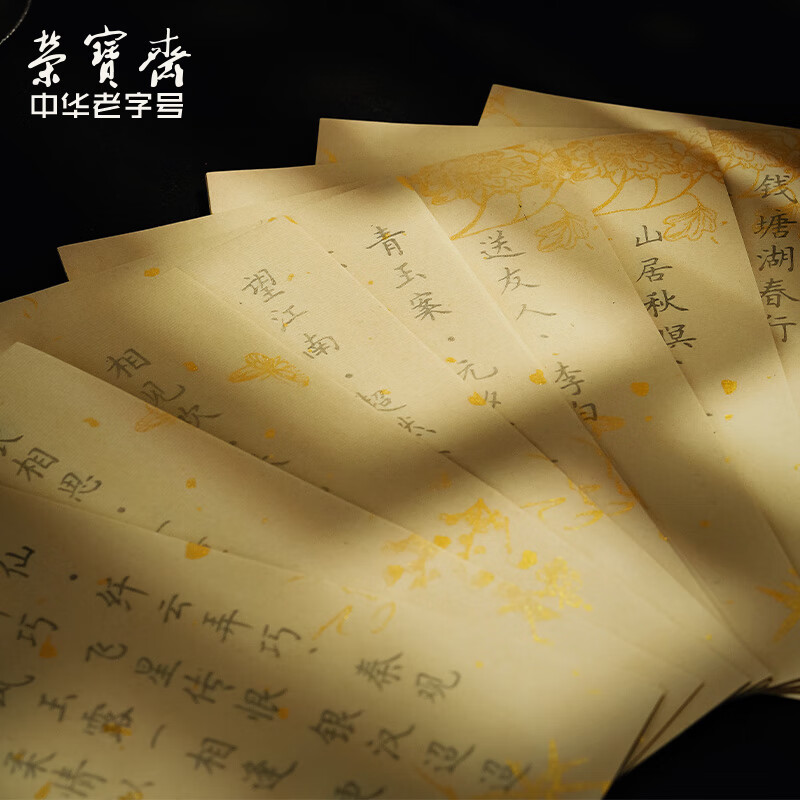 榮寶齋
中华老字号
钱塘湖春行
山居秋暝、
送友人、李白
青玉案·元夕
望江南·超然
相见欢
相思·一
仙·纤云弄巧、秦观
巧 飞星传恨 银汉迢迢
风玉露一相逢 便
柔情似